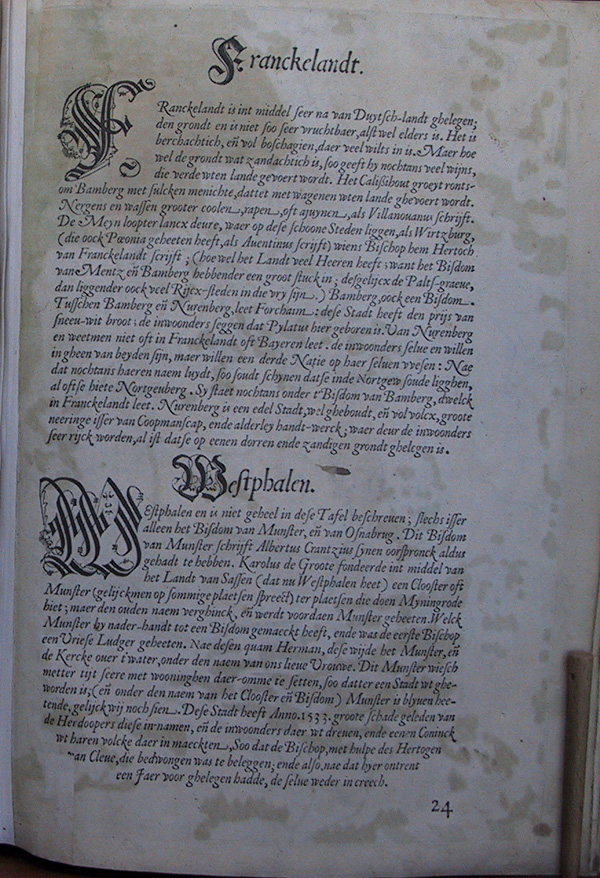 Franckelandt.
FRanckelandt is int middel seer na van Duytsch-landt ghelegen;
den grondt en is niet soo seer vruchtbaer, alst wel elders is. Het is
berchachtich, eñ vol boschagien, daer veel wilts in is. Maer hoe
wel de grondt wat zandachtich is, soo geeft hy nochtans veel wijns,
die verde wten lande gevoert wordt. Het Calissihout groeyt ronts-
om Bamberg met sulcken menichte, dattet met wagenen wten lande ghevoert wordt.
Nergens en wassen grooter coolen, rapen, oft ajuynen, als Villanouanus schrijft.
De Meyn loopter lancx deure, waer op dese schoone Steden liggen, als Wirtzburg,
(die oock Pœonia geheeten heeft, als Auentinus scrijft) wiens Bischop hem Hertoch
van Franckelandt scrijft; (hoe wel het Landt veel Heeren heeft: want het Bisdom
van Mentz eñ Bamberg hebbender een groot stuck in; desgelijcx de Palts-graeue,
dan liggender oock veel Rijcx-steden in die vry sijn.) Bamberg, oock een Bisdom.
Tusschen Bamberg eñ Nurenberg, leet Forchaim: dese Stadt heeft den prijs van
sneeu-wit broot: de inwoonders seggen dat Pylatus hier geboren is. Van Nurenberg
en weetmen niet oft in Franckelandt oft Bayeren leet. de inwoonders selue en willen
in gheen van beyden sijn, maer willen een derde Natie op haer seluen wesen: Nae
dat nochtans haeren naem luydt, soo soudt schynen datse inde Nortgew soude ligghen,
al oftse hiete Nortgeuberg. Sy staet nochtans onder t'Bisdom van Bamberg, dwelck
in Franckelandt leet. Nurenberg is een edel Stadt, wel gheboudt, eñ vol volcx, groote
neeringe isser van Coopmanscap, ende alderley handt-werck; waer deur de inwoonders
seer rijck worden, al ist datse op eenen dorren ende zandigen grondt ghelegen is.
Westphalen.
WEstphalen en is niet geheel in dese Tafel beschreuen; slechs isser
alleen het Bisdom van Munster, eñ van Osnabrug. Dit Bisdom
van Munster schrijft Albertus Crantzius synen oorspronck aldus
gehadt te hebben. Karolus de Groote fondeerde int middel van
het Landt van Sassen (dat nu Westphalen heet) een Clooster oft
Munster (gelijckmen op sommige plaetsen spreect) ter plaetsen die doen Myningrode
hiet; maer den ouden naem verghinck, eñ werdt voordaen Munster geheeten. Welck
Munster hy nader-handt tot een Bisdom gemaeckt heeft, ende was de eerste Bischop
een Vriese Ludger geheeten. Nae desen quam Herman, dese wijde het Munster, eñ
de Kercke ouer t'water, onder den naem van ons lieue Vrouwe. Dit Munster wiesch
metter tijt seere met wooninghen daer-omme te setten, soo datter een Stadt wt ghe-
worden is; (eñ onder den naem van het Clooster eñ Bisdom) Munster is blyuen hee-
tende, gelijck wij noch sien. Dese Stadt heeft Anno. 1533. groote schade geleden van
de Herdoopers diese in-namen, eñ de inwoonders daer wt dreuen, ende eenen Coninck
wt haren volcke daer in maeckten, Soo dat de Bisschop, met hulpe des Hertogen
van Cleue, die bedwongen was te beleggen; ende also, nae dat hyer ontrent
een Jaer voor ghelegen hadde, de selue weder in creech.
24